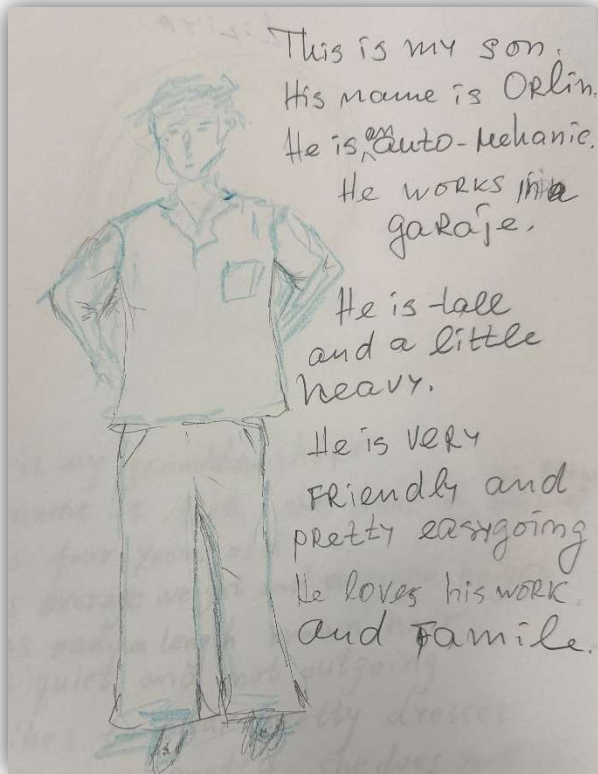 This is my son.
His name is Orlin.
He is an auto-Mehanic.
He works in a
garaje.
He is tall
and a little
heavy.
He is very
Friendly and
pretty easygoing
He loves his work
and Famile.